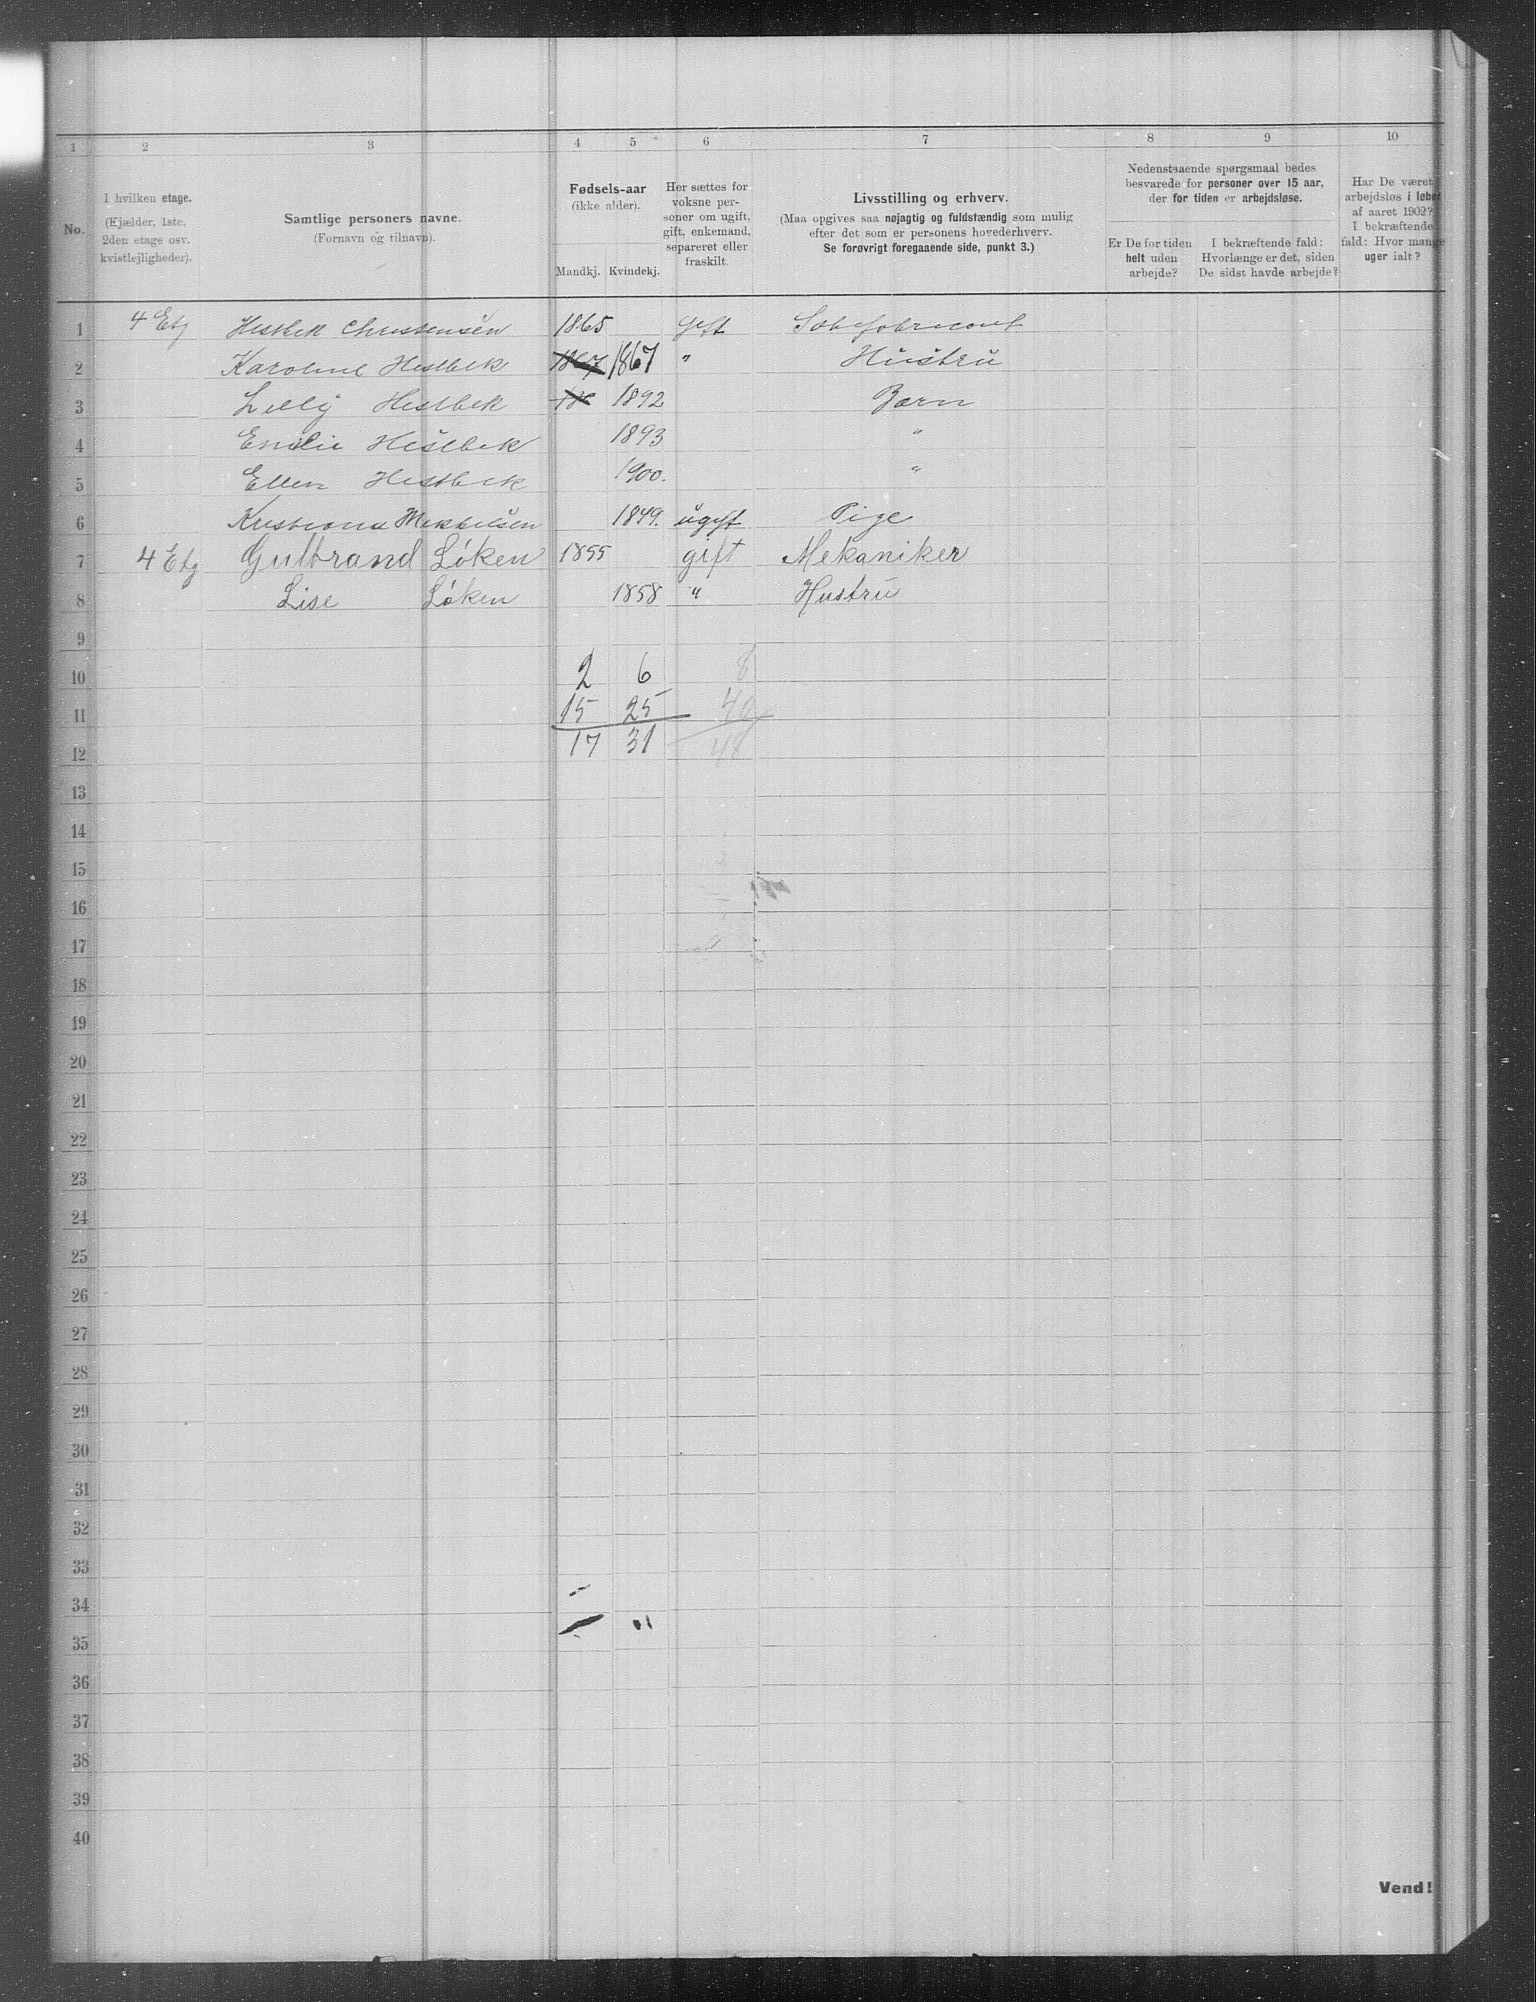 1 2 3 4 5 6 7 8 9 10
No.
I hvilken etage.
(Kjælder, 1ste,
2den etage osv.
kvistlejligheder).
Samtlige personers navne.
(Fornavn og tilnavn).
Fødsels-aar
(ikke alder).
Mandkj. Kvindekj.
Her sættes for
voksne per-
soner om ugift,
gift, enkemand,
separeret eller
fraskilt.
Livsstilling og erhverv.
(Maa opgives saa nøjagtig og fuldstændig som mulig
efter det som er personens hovederhverv.
Se forøvrigt foregaaende side, punkt 3.)
Nedenstaaende spørgsmaal bedes
besvarede for personer over 15 aar,
der for tiden er arbejdsløse.
Er De for tiden
helt uden
arbejde?
I bekræftende fald:
Hvorlænge er det, siden
De sidst havde arbejde?
Har De været
arbejdsløs i løbet
af aaret 1902?
I bekræftende
fald: Hvor mange
uger ialt?
1 4 Etg Hestbek Christensen 1865 gift
2 Karoline Hestbek 1867 1867 " Hustru
3 Lilly Hestbek 18 1892 Barn
4 Emilie Hestbek 1893 "
5 Ellen Hestbek 1900. "
6 Kristiana Mikkelsen 1849. ugift Pige
7 4 Etg Gulbrand Løken 1855 gift Mekaniker
8 Lise Løken 1858 " Hustru
9
10 2 6 8
11 15 25 40
12 17 31 48
13
14
15
16
17
18
19
20
21
22
23
24
25
26
27
28
29
30
31
32
33
34
35
36
37
38
39
40
Vend!